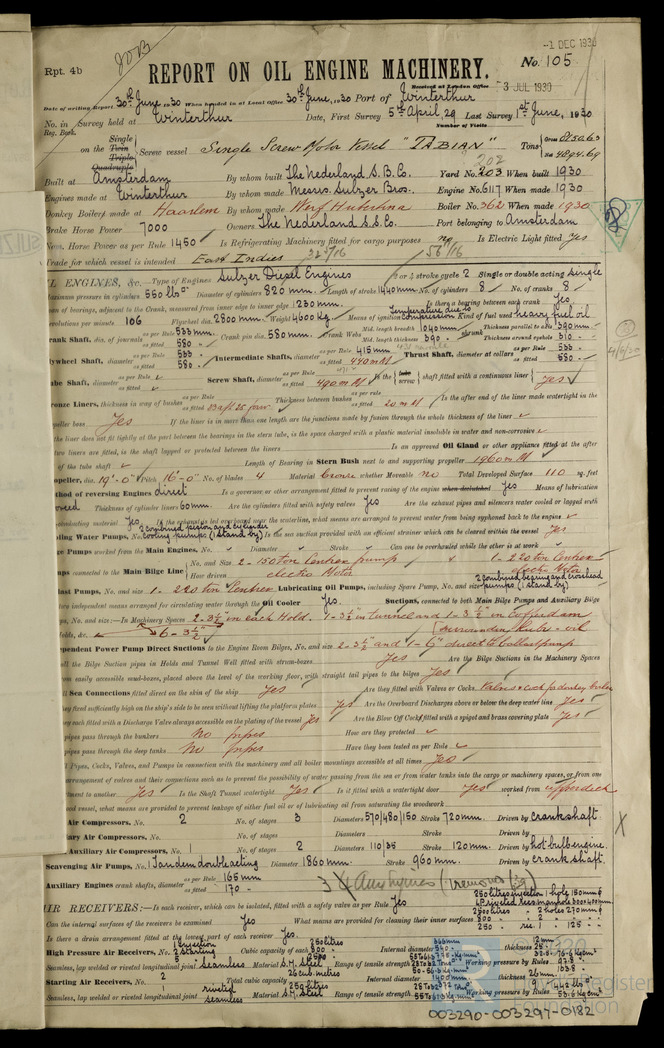 -1 DEC 1930
JOB
Rpt. 4b
No. 105
REPORT ON OIL ENGINE MACHINERY.
Received at London Office 3 JUL 1930
Date of writing Report 30th June, 1930 When handed in at Local Office 30th June, 1930 Port of Winterthur
No. in Survey held at Winterthur Date, First Survey 5th April, 29 Last Survey 1st June, 1930
Reg. Book.
Number of Visits
Single
on the Twin Screw vessel Single Screw Motor Vessel "TABIAN" Tons Gross 8150.63
Triple
Quadruple
Net 4894.69
202
Built at Amsterdam By whom built The Nederland S.B. Co. Yard No. 203 When built 1930
Engines made at Winterthur By whom made Messrs. Sulzer Bros. Engine No. 6117 When made 1930
Donkey Boilers made at Haarlem By whom made Werf Boiler No. 362 When made 1930
Brake Horse Power 7000 Owners The Nederland S.S. Co. Port belonging to Amsterdam
Nom. Horse Power as per Rule 1450 Is Refrigerating Machinery fitted for cargo purposes no Is Electric Light fitted Yes
Trade for which vessel is intended East Indies
OIL ENGINES, &c. Type of Engines Sulzer Diesel Engines 2 or 4 stroke cycle 2 Single or double acting single
Maximum pressure in cylinders 550 lbs Diameter of cylinders 820 mm. Length of stroke 1440 mm No. of cylinders 8 No. of cranks 8
Span of bearings, adjacent to the Crank, measured from inner edge to inner edge 1230 mm. Is there a bearing between each crank Yes
Revolutions per minute 106 Flywheel dia. 2500 mm. Weight 4600 kg. Means of ignition temperature due to compression Kind of fuel used heavy fuel oil
Crank Shaft, dia. of journals as per Rule 533 mm. as fitted 580 Crank pin dia. 580 mm. Crank Webs Mid. length breadth 1040 mm Mid. length thickness 390 Thickness parallel to axis 390 mm Thickness around eyehole 310
Flywheel Shaft, diameter as per Rule 533 as fitted 580 Intermediate Shafts, diameter as per Rule 415 mm as fitted 440 mm Thrust Shaft, diameter at collars as per Rule 533 as fitted 580
Tube Shaft, diameter as per Rule as fitted Screw Shaft, diameter as per Rule as fitted 490 mm Is the screw shaft fitted with a continuous liner Yes
Bronze Liners, thickness in way of bushes as per Rule as fitted Thickness between bushes as per rule as fitted 20 Is the after end of the liner made watertight in the
propeller boss Yes If the liner is in more than one length are the junctions made by fusion through the whole thickness of the liner
the liner does not fit tightly at the part between the bearings in the stern tube, is the space charged with a plastic material insoluble in water and non-corrosive
two liners are fitted, is the shaft lapped or protected between the liners Is an approved Oil Gland or other appliance fitted at the after
of the tube shaft Length of Bearing in Stern Bush next to and supporting propeller 1960
Propeller, dia. 19'-0" Pitch 16'-0" No. of blades 4 Material bronze whether Moveable no Total Developed Surface 110 sq. feet
Method of reversing Engines direct Is a governor or other arrangement fitted to prevent racing of the engine when declutched Yes Means of lubrication
forced Thickness of cylinder liners 60 mm. Are the cylinders fitted with safety valves Yes Are the exhaust pipes and silencers water cooled or lagged with
non-conducting material Yes If the exhaust is led overboard near the waterline, what means are arranged to prevent water from being syphoned back to the engine
Cooling Water Pumps, No. 2 combined piston and cylinder cooling pumps (1 stand by) Is the sea suction provided with an efficient strainer which can be cleared within the vessel Yes
Bilge Pumps worked from the Main Engines, No. Diameter Stroke Can one be overhauled while the other is at work
Pumps connected to the Main Bilge Line No. and Size 2 - 150 ton Centrex pumps 1 - 220 ton Centrex
How driven electro Motor electro Motor
Ballast Pumps, No. and size 1 - 220 ton Centrex Lubricating Oil Pumps, including Spare Pump, No. and size 2 combined bearing and crosshead pumps (1 stand by)
two independent means arranged for circulating water through the Oil Cooler Yes. Suctions, connected to both Main Bilge Pumps and Auxiliary Bilge
Pumps, No. and size:—In Machinery Spaces 2 - 3½" in each Hold. 1 - 3½ in tunnel and 1 - 3½" in cofferdam
Holds, &c. 6 - 3½"
Independent Power Pump Direct Suctions to the Engine Room Bilges, No. and size 2 - 3½" and 1 - 6" direct to ballastpump
all the Bilge Suction pipes in Holds and Tunnel Well fitted with strum-boxes Yes Are the Bilge Suctions in the Machinery Spaces
from easily accessible mud-boxes, placed above the level of the working floor, with straight tail pipes to the bilges Yes
all Sea Connections fitted direct on the skin of the ship Yes Are they fitted with Valves or Cocks Valves & cock for donkey boiler
they fixed sufficiently high on the ship's side to be seen without lifting the platform plates Yes Are the Overboard Discharges above or below the deep water line Yes
they each fitted with a Discharge Valve always accessible on the plating of the vessel Yes Are the Blow Off Cocks fitted with a spigot and brass covering plate Yes
pipes pass through the bunkers No pipes How are they protected
pipes pass through the deep tanks No pipes Have they been tested as per Rule
all Pipes, Cocks, Valves, and Pumps in connection with the machinery and all boiler mountings accessible at all times Yes
arrangement of valves and their connections such as to prevent the possibility of water passing from the sea or from water tanks into the cargo or machinery spaces, or from one
compartment to another Yes Is the Shaft Tunnel watertight Yes Is it fitted with a watertight door Yes worked from upperdeck
wood vessel, what means are provided to prevent leakage of either fuel oil or of lubricating oil from saturating the woodwork
Main Air Compressors, No. 2 No. of stages 3 Diameters 570/480/150 Stroke 720 mm. Driven by crankshaft
Auxiliary Air Compressors, No. No. of stages Diameters Stroke Driven by
Small Auxiliary Air Compressors, No. 1 No. of stages 2 Diameters 110/35 Stroke 120 mm. Driven by hot bulb engine.
Scavenging Air Pumps, No. 1 Tandem double acting Diameter 1860 mm. Stroke 960 mm. Driven by crank shaft.
Auxiliary Engines crank shafts, diameter as per Rule 165 mm as fitted 170
AIR RECEIVERS:—Is each receiver, which can be isolated, fitted with a safety valve as per Rule Yes
Can the internal surfaces of the receivers be examined Yes What means are provided for cleaning their inner surfaces
Is there a drain arrangement fitted at the lowest part of each receiver Yes.
High Pressure Air Receivers, No. 1 injection 2 starting Cubic capacity of each 250 litres Internal diameter thickness 12 mm
Seamless, lap welded or riveted longitudinal joint Seamless Material S.M. Steel Range of tensile strength Working pressure by Rules
Starting Air Receivers, No. 2 Total cubic capacity 26 cub. metres 250 litres Internal diameter 1400 mm thickness 26 mm.
Seamless, lap welded or riveted longitudinal joint riveted seamless Material S.M. Steel Range of tensile strength Working pressure by Rules
003290-003297-0182